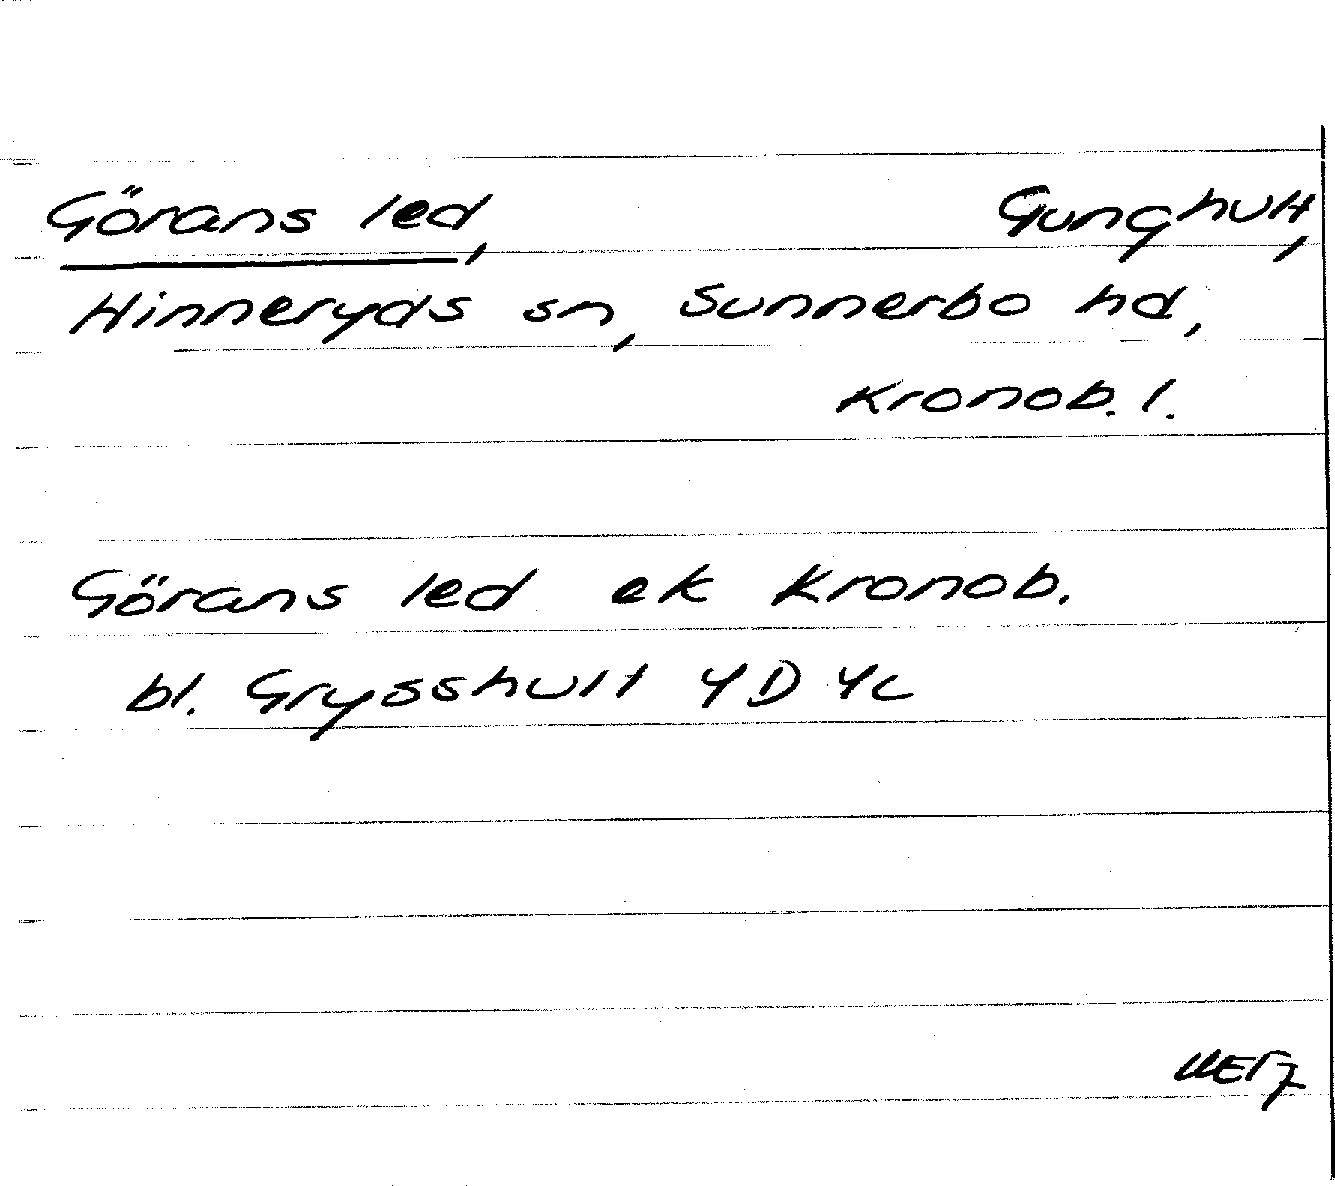 Görans led, Gunghult,
Hinneryds sn, Sunnerbo hd,
Kronob. l.
Görans led ek Kronob.
bl. Grysshult 4D 4c